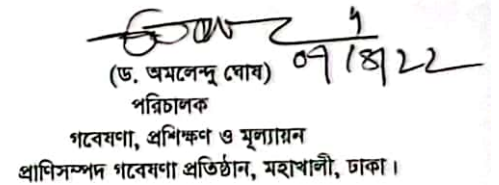 ০৭/৪/২২
(ড. অমলেন্দু ঘোষ)
পরিচালক
গবেষণা, প্রশিক্ষণ ও মূল্যায়ন
প্রাণিসম্পদ গবেষণা প্রতিষ্ঠান, মহাখালী, ঢাকা।